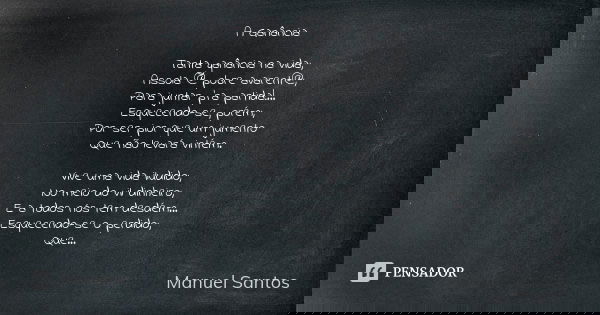 A Ganância
Tanta ganância na vida;
Assola @ pobre avarent@;
Para juntar p'ra partida!...
Esquecendo-se; porém;
Por ser pior que um jumento
Que não levará vintém.
Vive uma vida iludido;
No meio do vil dinheiro;
E a todos nós tem desdém...
Esquecendo-se o perdido;
Que...
Manuel Santos
PENSADOR